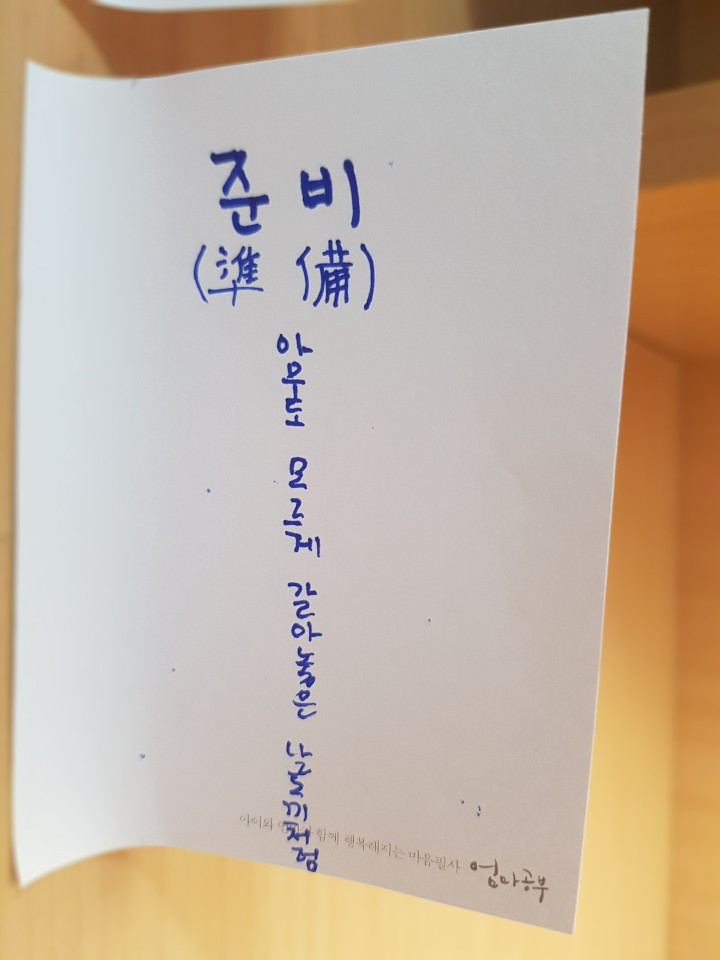 준비
(準備)
아무도 모르게 갈아놓은 낫도끼처럼
아이와 함께 행복해지는 마음필사 엄마공부